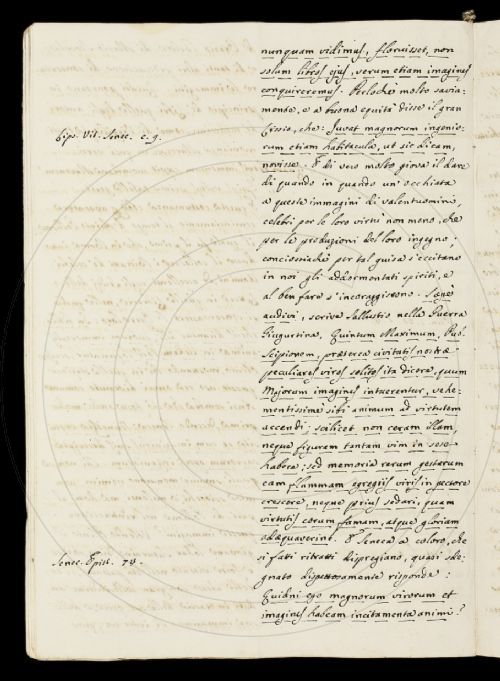 nunquam vidimus, floruisset, non
solum libros ejus, verum etiam imagines
conquireremus. Perloché molto savia-
mente, e a buona equità disse il gran
Lipsio, che: Juvat magnorum ingenio-
Lips. Vit. Senec. c. 9.
rum etiam habitacula, ut sic dicam,
novisse. E di vero molto giova il dare
di quando in quando un'occhiata
a queste immagini di valentuomini,
celebri per le loro virtù non meno, che
per le produzioni del loro ingegno;
conciossiachè per tal guisa s'eccitano
in noi gli addormentati spiriti, e
al ben fare s'incoraggiscono. Saepe
audivi, scrive Sallustio nella Guerra
Giugurtina, Quintum Maximum, Pub.
Scipionem, praeterea civitatis nostrae
peculiares viros solitos ita dicere, quum
Majorum imagines intuerentur, vehe-
mentissime sibi animum ad virtutem
accendi; scilicet non ceram illam,
neque figuram tantam vim in sese
habere; sed memoria rerum gestarum
eam flammam egregiis viris in pectore
crescere, neque prius sedari, quam
virtutis eorum famam, atque gloriam
adaequaverint. E Seneca a coloro, che
si fatti ritratti dispregiano, quasi sde-
Senec. Epist. 74.
gnato dispettosamente risponde:
Quidni ego magnorum virorum et
imagines habeam incitamenta animi?